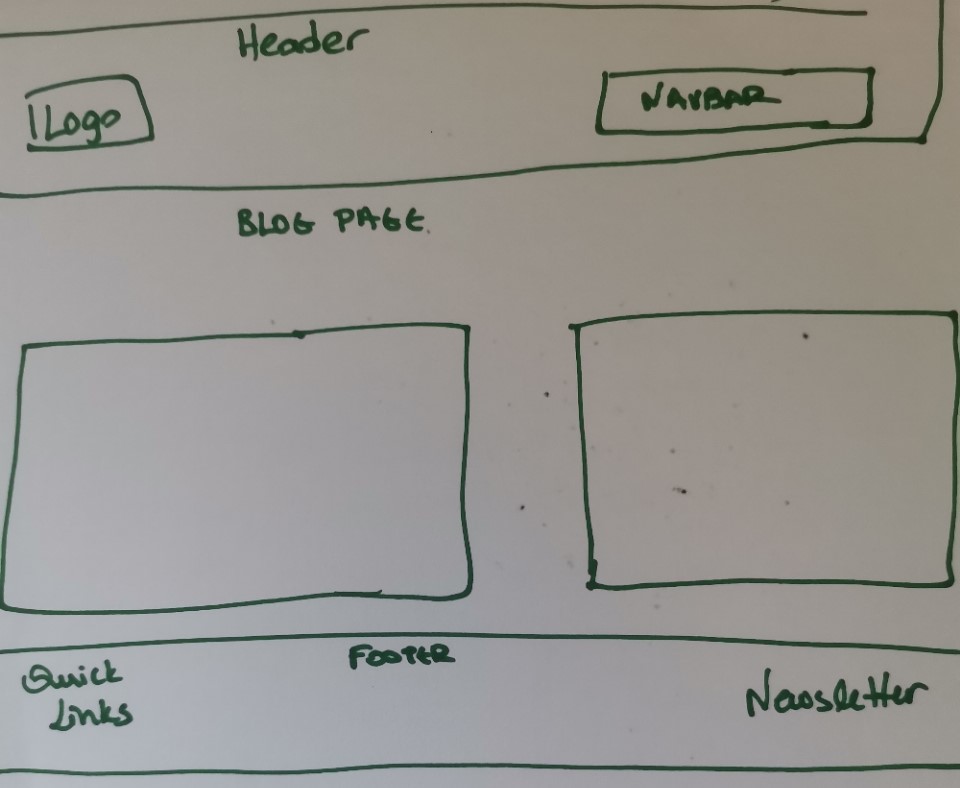 Header
Logo
NAVBAR
BLOG PAGE.
FOOTER
Quick
Links
Newsletter